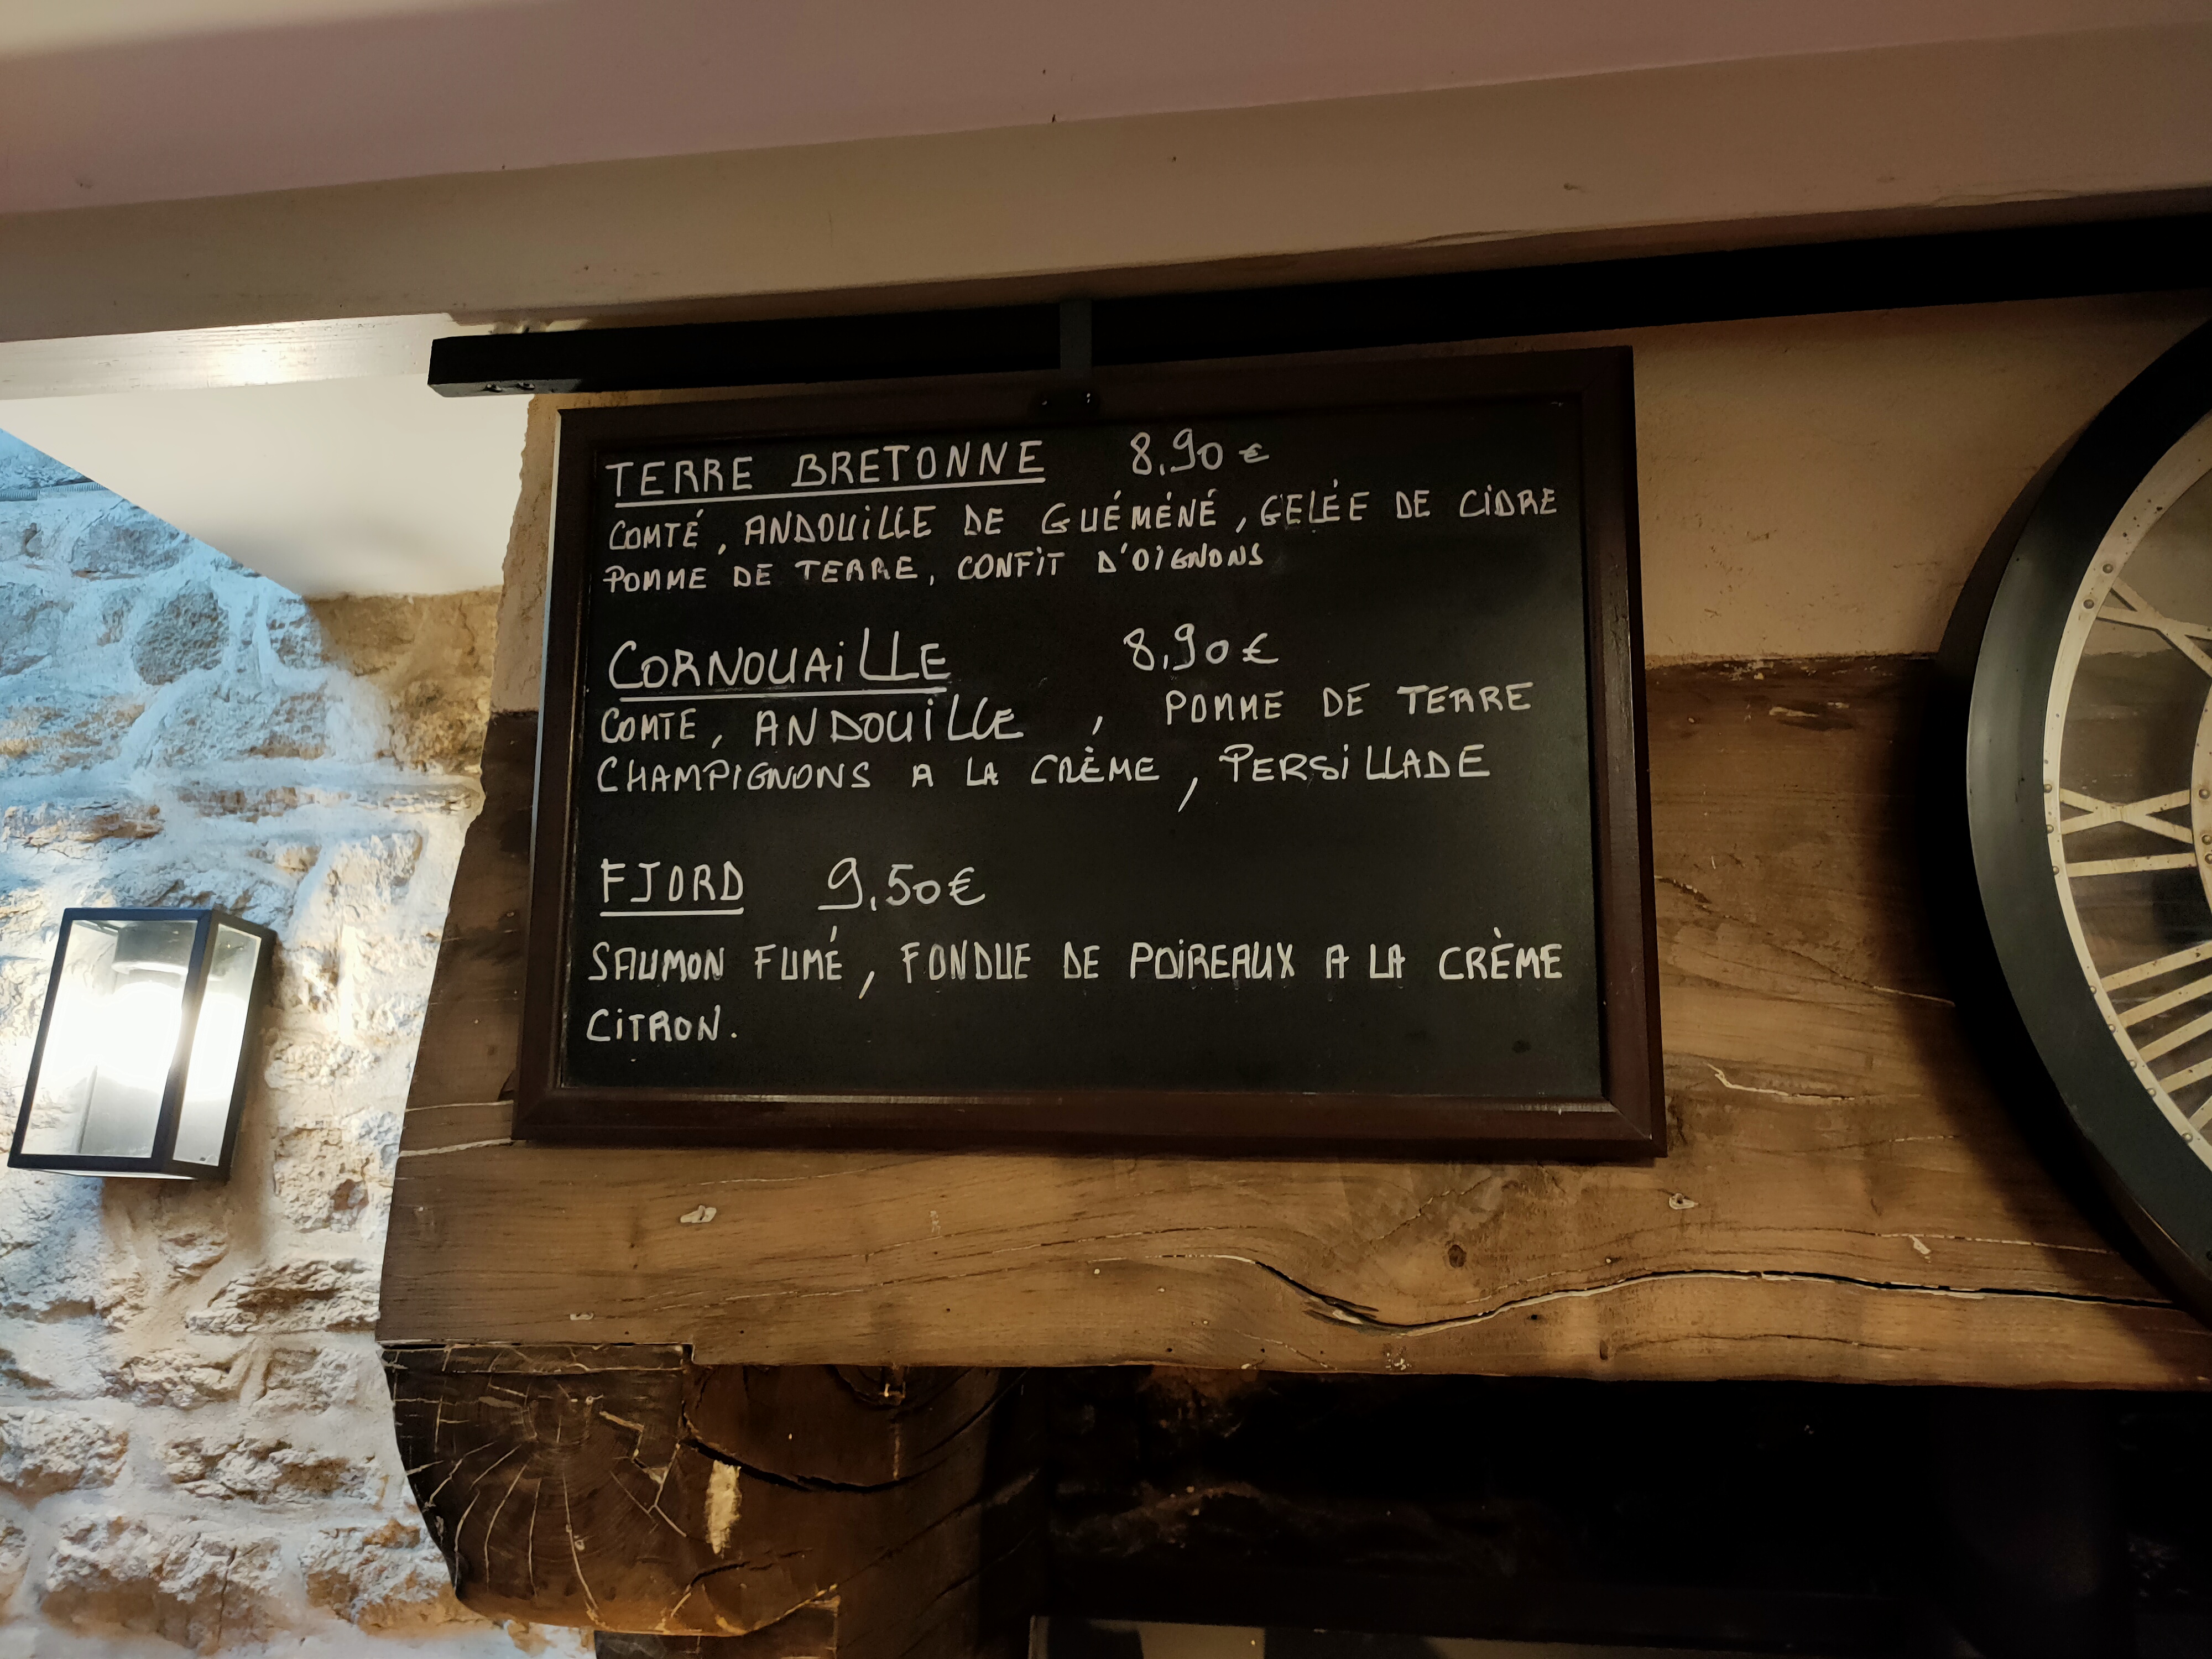 TERRE BRETONNE 8,90 €
COMTÉ, ANDOUILLE DE GUÉMÉNÉ, GELÉE DE CIDRE
POMME DE TERRE, CONFIT D'OIGNONS
CORNOUAILLE 8,90 €
COMTE, ANDOUILLE, POMME DE TERRE
CHAMPIGNONS A LA CRÈME, PERSILLADE
FJORD 9,50 €
SAUMON FUMÉ, FONDUE DE POIREAUX A LA CRÈME
CITRON.